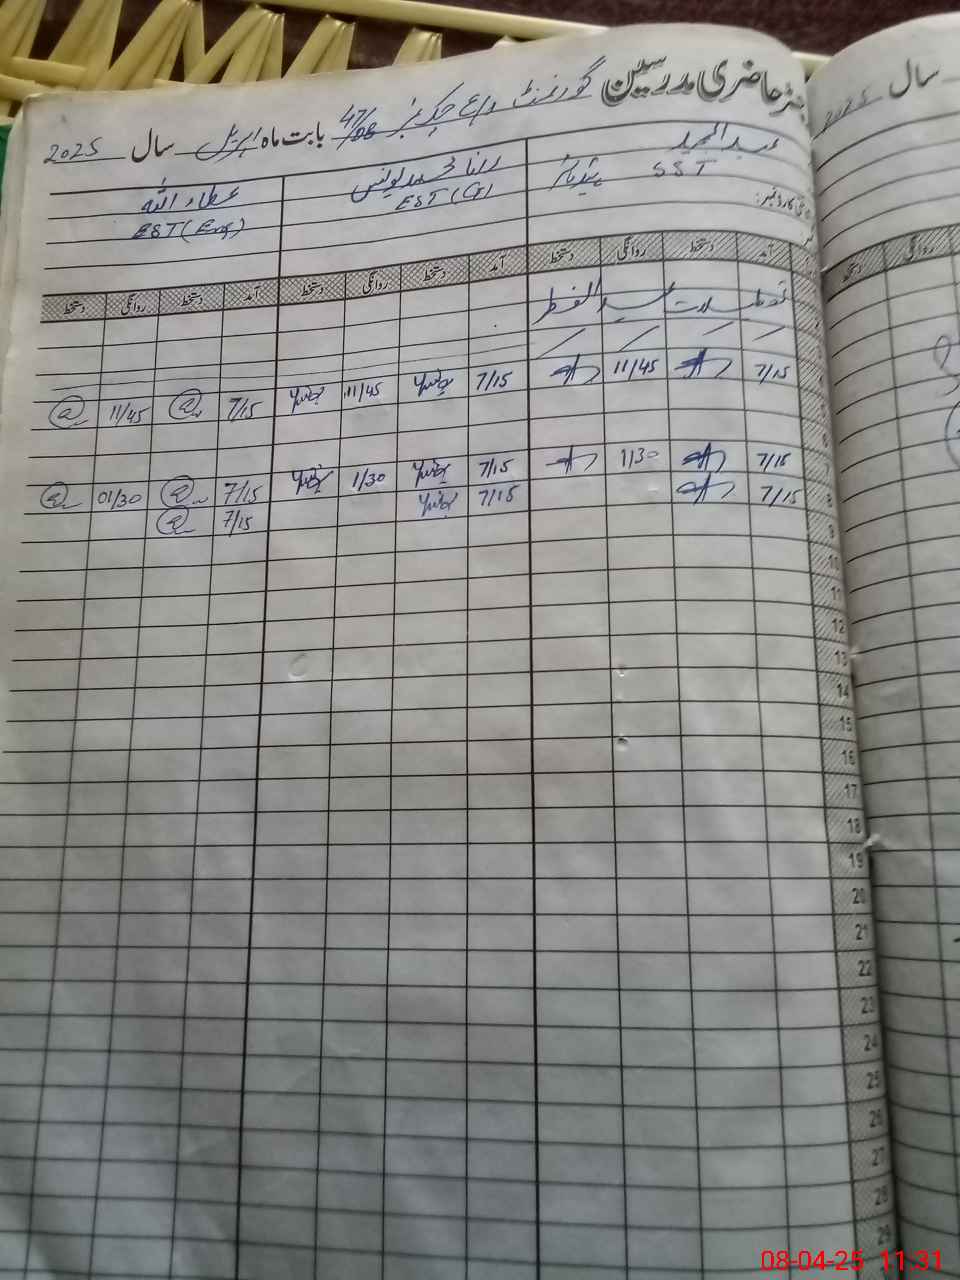 رجسٹر حاضری مدرسین گورنمنٹ چک نمبر 47/DB بابت ماہ اپریل سال 2025
سال 2025
عبدالمجید
SST ہیڈ ماسٹر
رانا محمد یونس
EST (CS)
عطاء اللہ
EST (Eng)
آمد دستخط روانگی دستخط آمد دستخط روانگی دستخط آمد دستخط روانگی دستخط
روانگی دستخط
تعطیلات عید الفطر
7/15 11/45 7/15 یونس 11/45 یونس 7/15 11/45
7/15 1/30 7/15 یونس 1/30 یونس 7/15 01/30
8 7/15 7/15 یونس 7/15
9
10
11
12
13
14
15
16
17
18
19
20
21
22
23
24
25
26
27
28
29
08-04-25 11:31